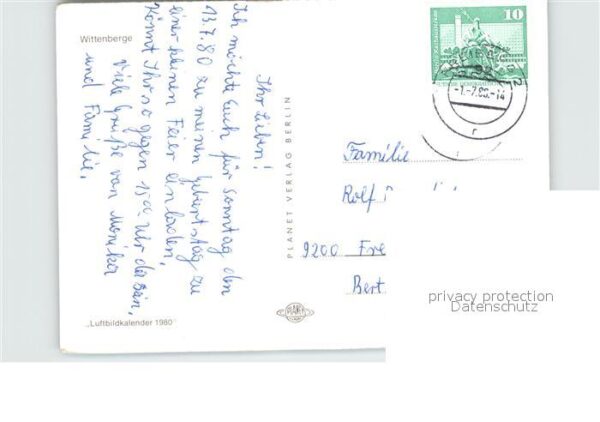 Wittenberge
Ihr Lieben!
Ich möchte Euch für Sonntag den
13.7.80 zu meinen Geburtstag zu
einer kleinen Feier einladen,
Könnt Ihr so gegen 15 00 Uhr da sein,
Viele Grüße von Monika
und Familie.
"Luftbildkalender 1980"
PLANET VERLAG BERLIN
10
-1.-7.80.-14
Familie
Rolf
9200 Fre
Bert
privacy protection
Datenschutz